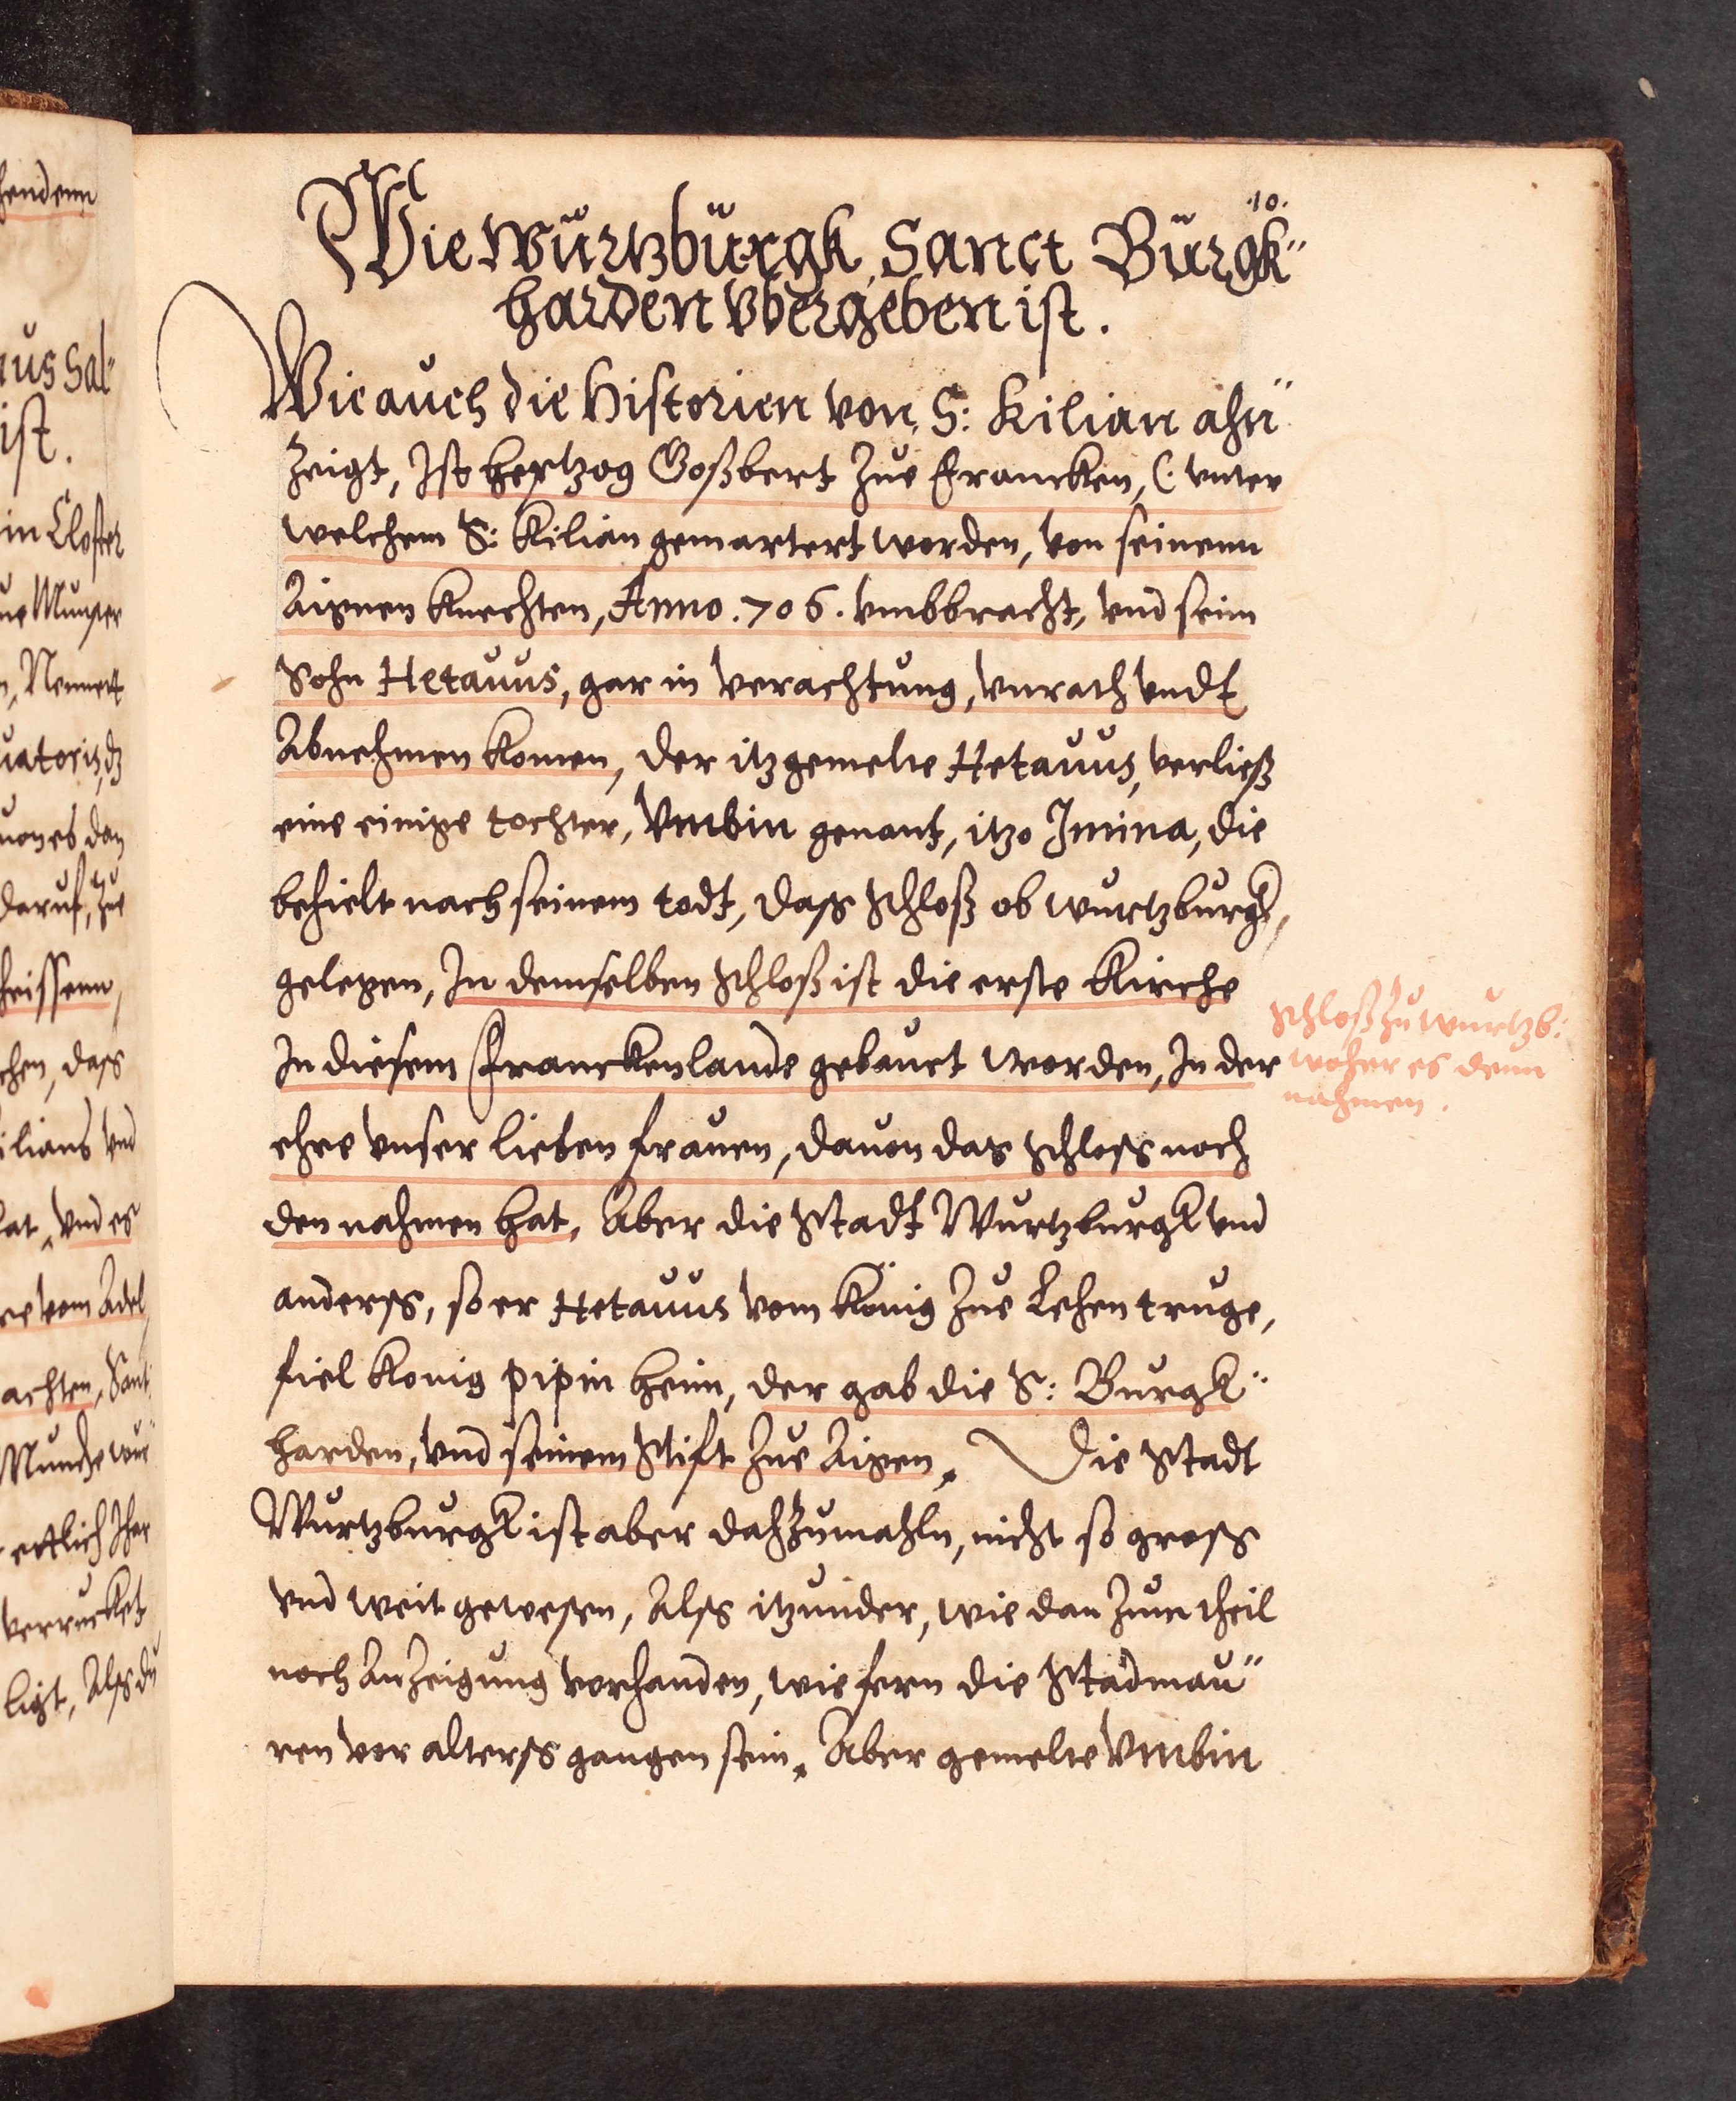 10.
Wie Würtzburgk, Sanct Burgk"
harden vbergeben ist.
Wie auch die Historien von S: Kilian ahn"
zeigt, Ist hertzog Goßbert zue Francken, (: vnter
welchem S: Kilian gemartert worden, von seinenn
Aigenen Knechten, Anno .706. vmbbracht, vnd sein
Sohn Hetauus, gar in Verachtung, vnrath vndt
Abnehmen komen, der itzgemelte Hetauus, verließ
eine einige tochter, Vmbin genant, itzo Jmina, die
behielt nach seinem todt, dass Schloß ob wurtzburgk,
gelegen, In demselben Schloß ist die erste Kirche
In diesem Franckenlande gebauet worden, In der
ehre vnser lieben frauen, dauon das Schloss noch
den nahmen hat, Aber die Stadt Wurtzburgk vnd
anderss, so er Hetauus vom König zue Lehen truge,
fiel Konig pipin heim, der gab die S: Burgk"
harden, vnd seinem Stift zue Aigen. Die Stadt
Wurtzburgk ist aber dahzumahln, nicht so gross
vnd weit gewesen, Alss itzunder, wie dan zum theil
noch Anzeigung vorhanden, wie fern die Stadmau"
ren vor alterss gangen sein. Aber gemelte Vmbin
Schloß zu wurtzb:
woher es denn
nahmen.
hendenn
aus Sal"
ist.
in Closter
ne Munster
Nennet
uatoris, dz
uon es dan
daruf, zu
heissenn,
chen, dass
ilians vnd
hat, vnd es
vom Adel
achten, Sant
Munche wur"
ertlich Jhar
verrucket
ligt, Alss du